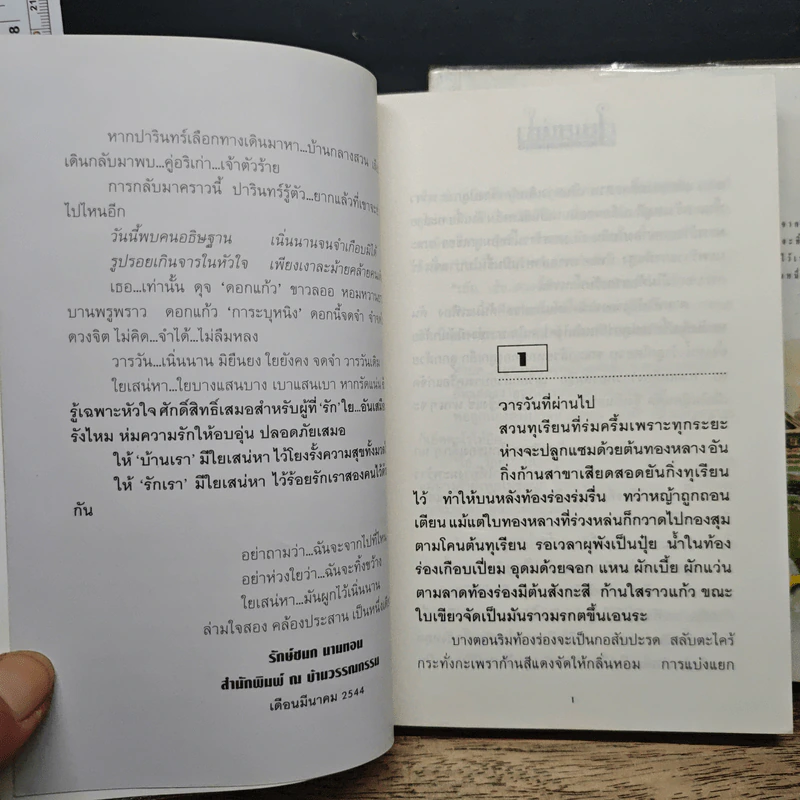 หากปารินทร์เลือกทางเดินมาหา...บ้านกลางสวน
เดินกลับมาพบ...คู่อริเก่า...เจ้าตัวร้าย
การกลับมาคราวนี้ ปารินทร์รู้ตัว...ยากแล้วที่เขาจะ
ไปไหนอีก
วันนี้พบคนอธิษฐาน เนิ่นนานจนจำเกือบมิได้
รูปรอยเกินจารในหัวใจ เพียงเงาละม้ายคล้าย
เธอ...เท่านั้น ดุจ ‘ดอกแก้ว’ ขาวลออ หอมหวาน
บานพรูพราว ดอกแก้ว ‘การะบุหนิง’ ดอกนี้จดจำ
ดวงจิต ไม่คิด...จำได้...ไม่ลืมหลง
วารวัน...เนิ่นนาน มิยืนยง ใยยังคง จดจำ วารวันเดิม
ใยเสน่หา...ใยบางแสนบาง เบาแสนเบา หากรัดแน่น
รู้เฉพาะหัวใจ ศักดิ์สิทธิ์เสมอสำหรับผู้ที่ ‘รัก’ ใย...อัน
รังไหม ห่มความรักให้อบอุ่น ปลอดภัยเสมอ
ให้ ‘บ้านเรา’ มีใยเสน่หา ไว้โยงรั้งความสุขทั้ง
ให้ ‘รักเรา’ มีใยเสน่หา ไว้ร้อยรักเราสองคนไว้
กัน
อย่าถามว่า...ฉันจะจากไปที่ไหน
อย่าห่วงใยว่า...ฉันจะทิ้งขว้าง
ใยเสน่หา...มันผูกไว้เนิ่นนาน
ล่ามใจสอง คล้องประสาน เป็นหนึ่งเดียว
รักษ์ชนก นามทอน
สำนักพิมพ์ ณ บ้านวรรณกรรม
เดือนมีนาคม 2544
1
วารวันที่ผ่านไป
สวนทุเรียนที่ร่มครึ้มเพราะทุกระยะ
ห่างจะปลูกแซมด้วยต้นทองหลาง อัน
กิ่งก้านสาขาเสียดสอดยันกิ่งทุเรียน
ไว้ ทำให้บนหลังท้องร่องร่มรื่น ทว่าหญ้าถูกถอน
เตียน แม้แต่ใบทองหลางที่ร่วงหล่นก็กวาดไปกองสุม
ตามโคนต้นทุเรียน รอเวลาผุพังเป็นปุ๋ย น้ำในท้อง
ร่องเกือบเปี่ยม อุดมด้วยจอก แหน ผักเบี้ย ผักแว่น
ตามลาดท้องร่องมีต้นสังกะสี ก้านใสราวแก้ว ขณะ
ใบเขียวจัดเป็นมันราวมรกตขึ้นเอนระ
บางตอนริมท้องร่องจะเป็นกอสับปะรด สลับตะไคร้
กระทั่งกะเพราก้านสีแดงจัดให้กลิ่นหอม การแบ่งแยก
1